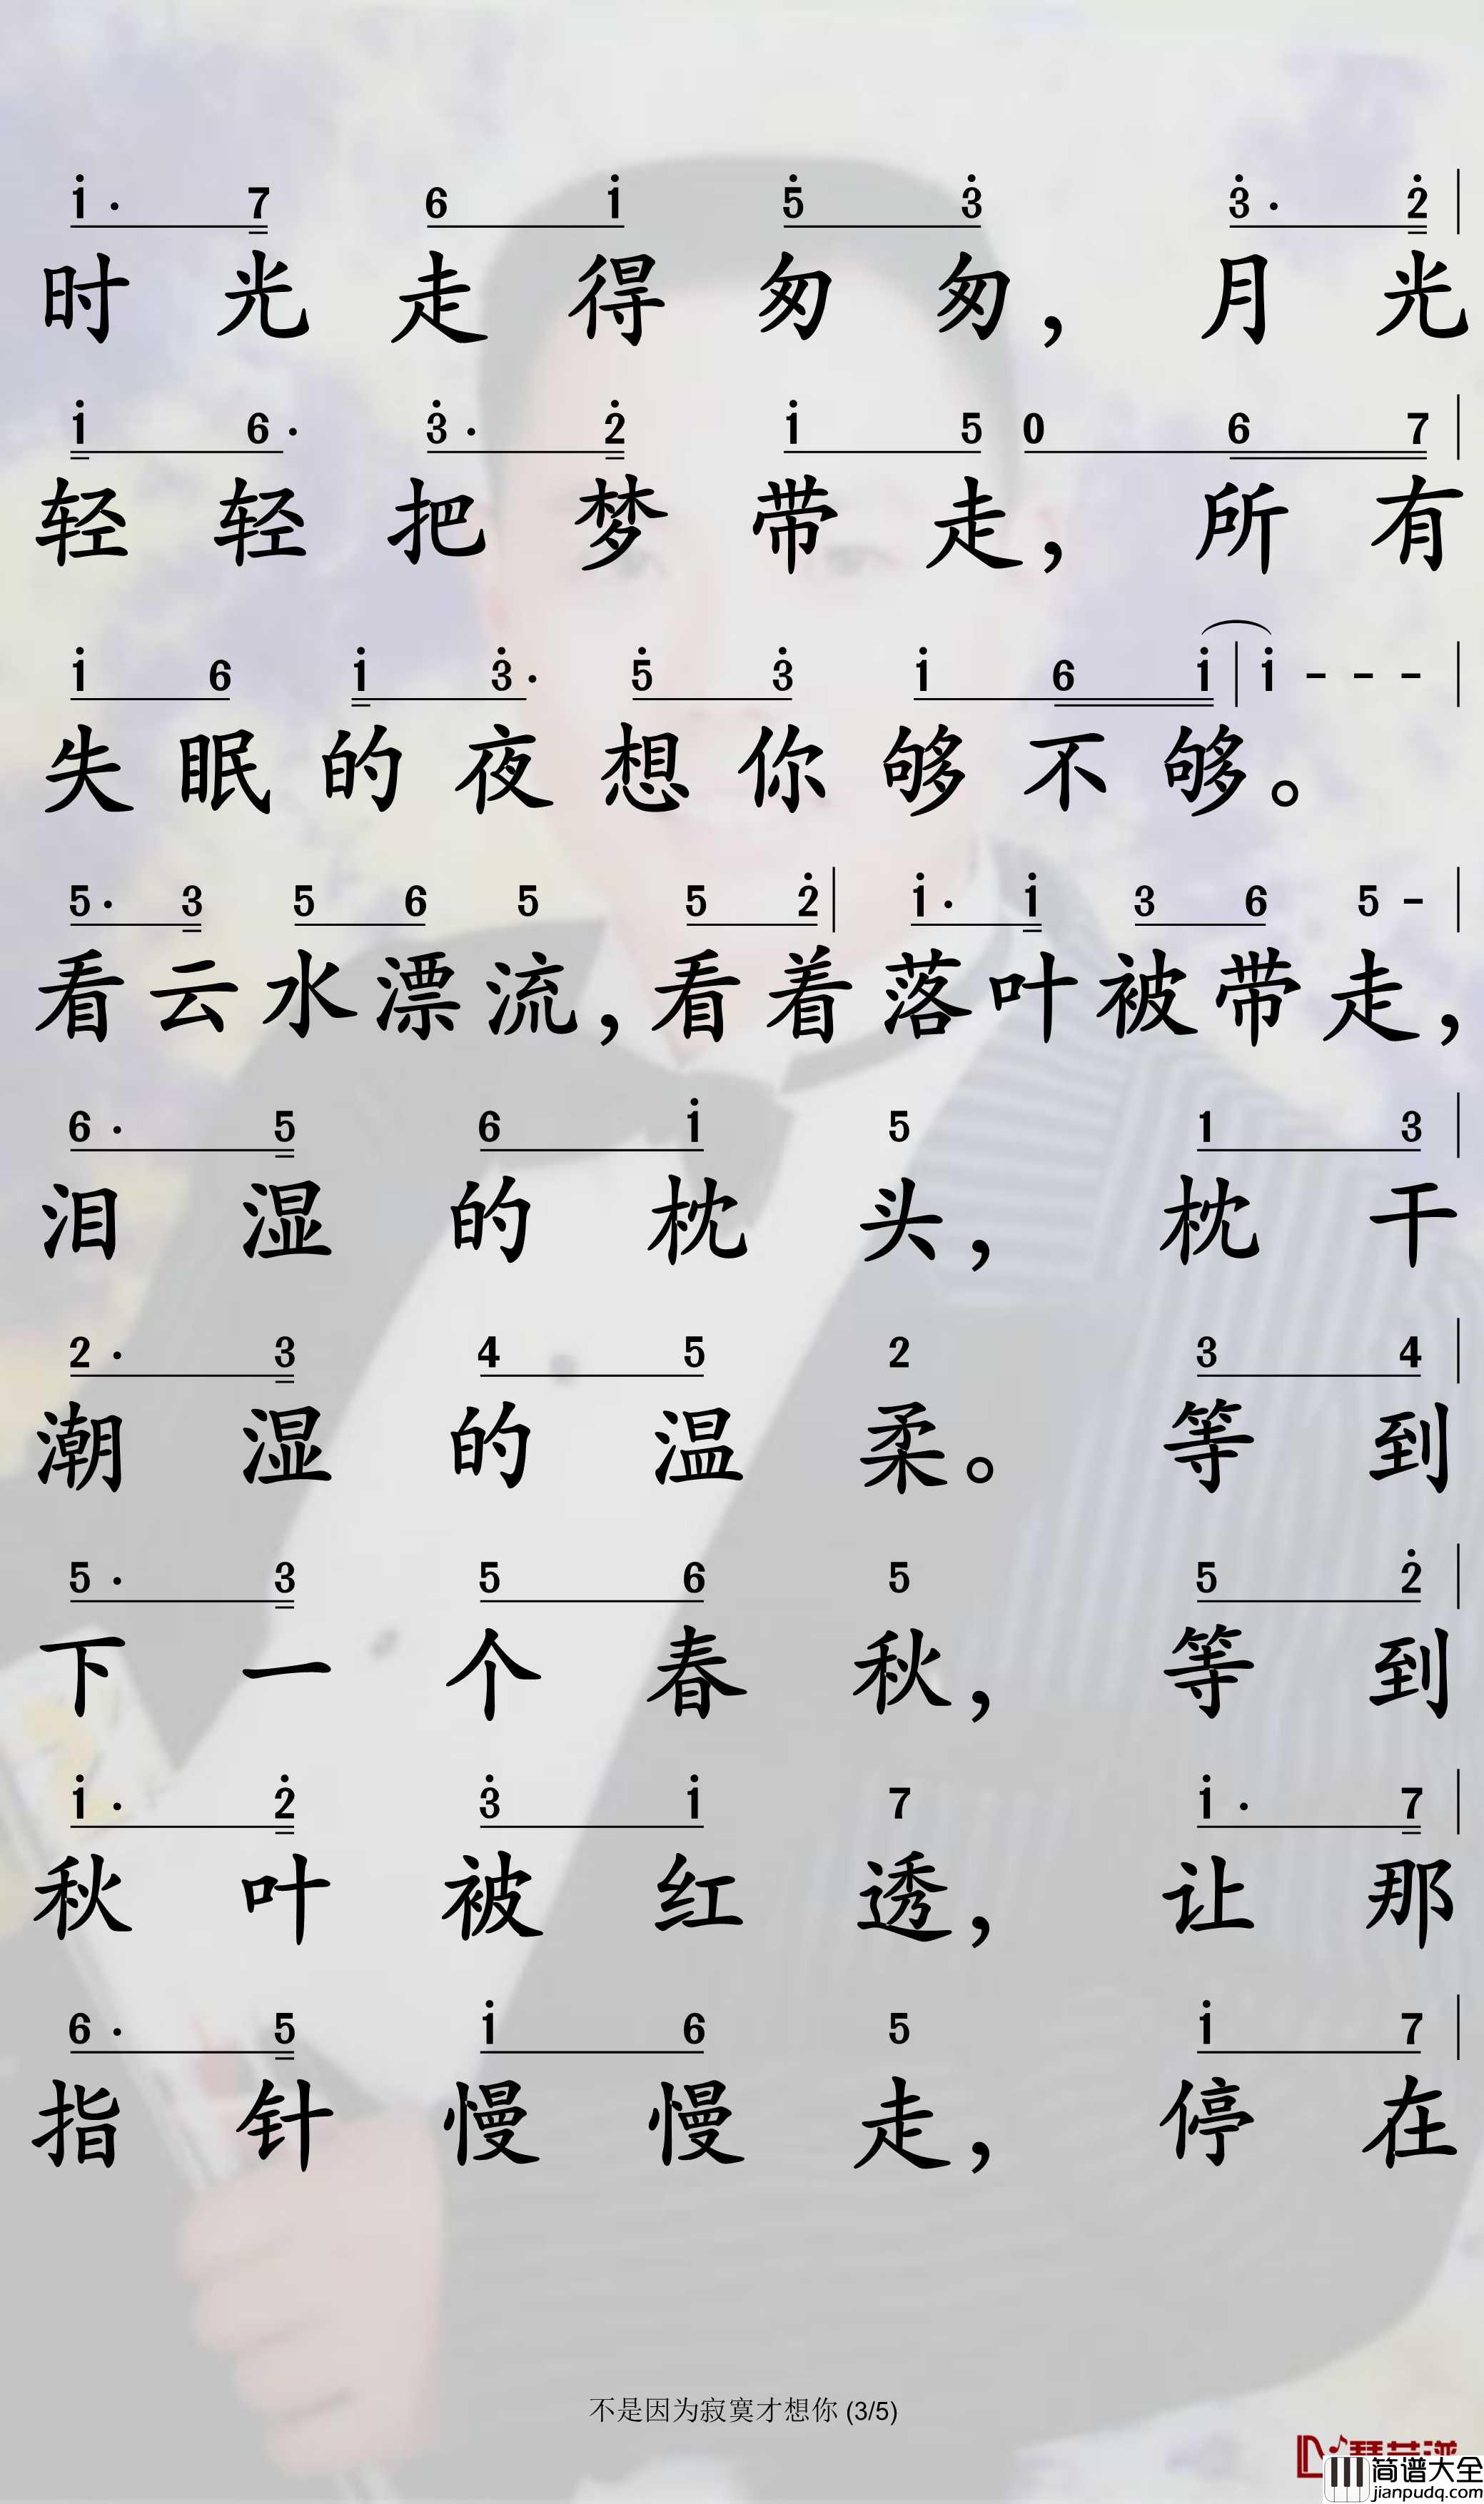 i· 7 6 i 5 3 3· 2 |
时光走得匆匆，月光
i 6· 3· 2 i 5 0 6 7 |
轻轻把梦带走，所有
i 6 i 3· 5 3 i 6 i | i - - - |
失眠的夜想你够不够。
5· 3 5 6 5 5 2 | i· i 3 6 5 - |
看云水漂流，看着落叶被带走，
6· 5 6 i 5 1 3 |
泪湿的枕头，枕干
2· 3 4 5 2 3 4 |
潮湿的温柔。等到
5· 3 5 6 5 5 2 |
下一个春秋，等到
i· 2 3 i 7 i· 7 |
秋叶被红透，让那
6· 5 i 6 5 i 7 |
指针慢慢走，停在
不是因为寂寞才想你 (3/5)
简谱大全
jianpudq.com